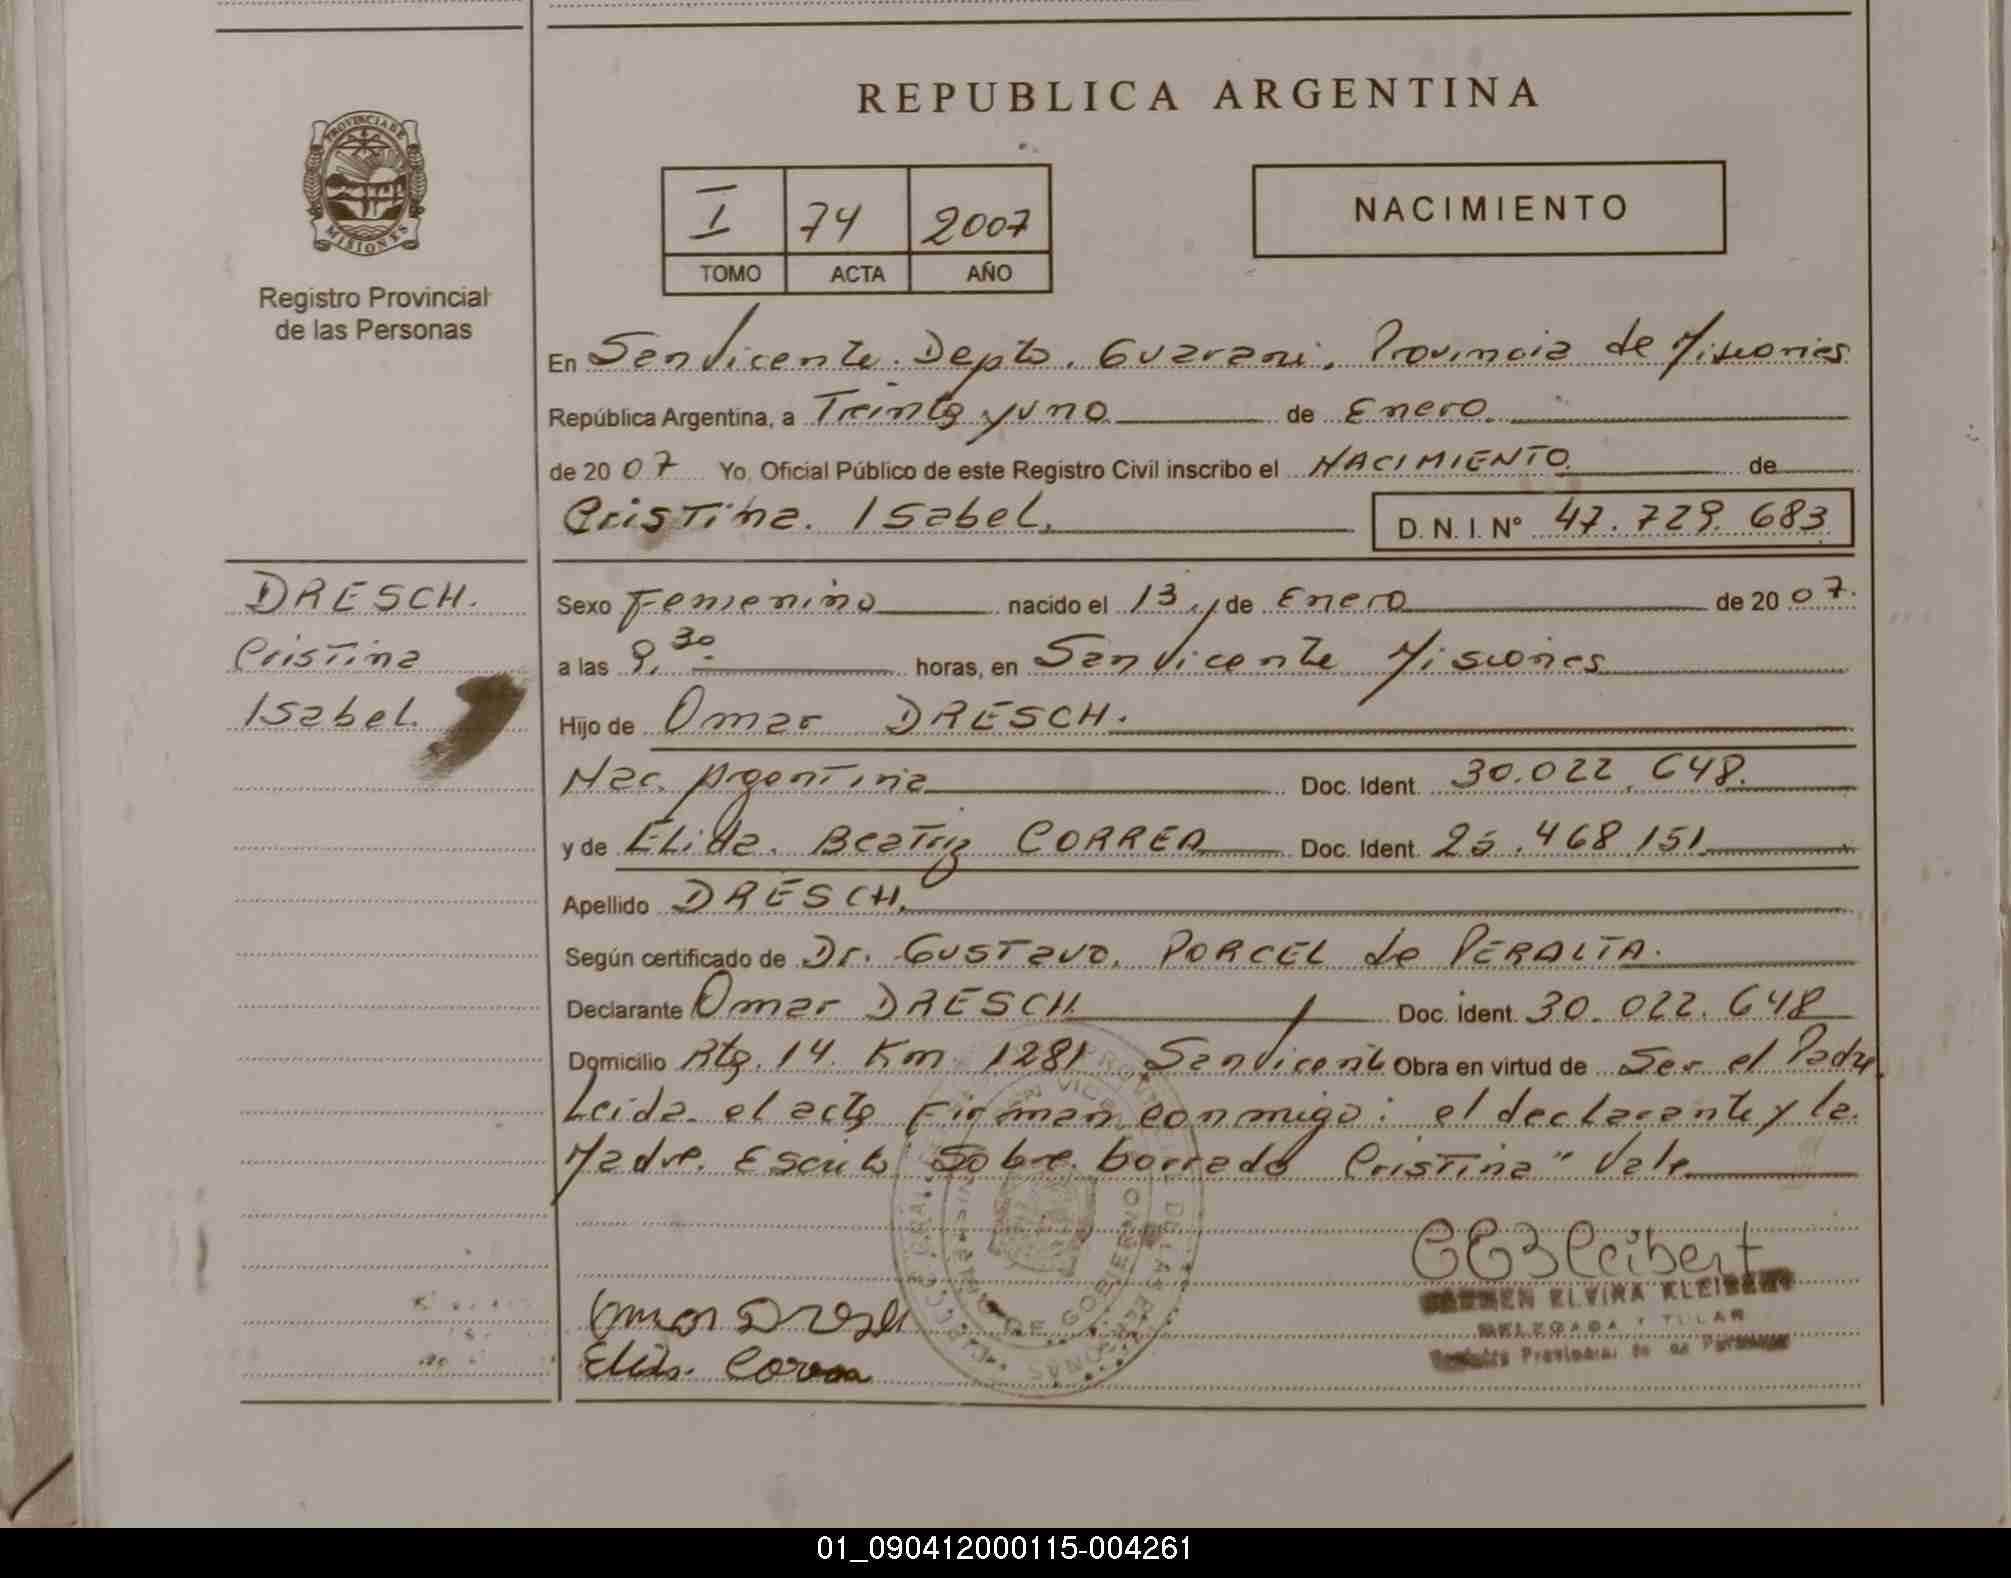 REPUBLICA ARGENTINA
PROVINCIA DE
MISIONES
Registro Provincial
de las Personas
I 74 2007
TOMO ACTA AÑO
NACIMIENTO
En San Vicente. Depto. Guarani. Provincia de Misiones
República Argentina, a Treinta y uno de Enero.
de 20 07 Yo, Oficial Público de este Registro Civil inscribo el NACIMIENTO de
Cristina. Isabel. D. N. I. Nº 47.729.683
DRESCH.
Cristina
Isabel.
Sexo Femenino nacido el 13 de Enero de 20 07.
a las 9.30 horas, en San Vicente Misiones
Hijo de Omar DRESCH.
Nac. Argentina Doc. Ident. 30.022.648.
y de ELida. Beatriz CORREA Doc. Ident. 25.468.151
Apellido DRESCH.
Según certificado de Dr. Gustavo. PORCEL de PERALTA.
Declarante Omar DRESCH Doc. ident. 30.022.648
Domicilio Rta. 14. Km. 1281 San Vicente Obra en virtud de Ser el Padre.
Leida. el acta Firman conmigo: el declarante y la.
Madre. Escrito Sobre borrado Cristina" Vale
Omar Dresch
Elida. Correa
CEKleibert
CARMEN ELVIRA KLEIBERT
DELEGADA TITULAR
Registro Provincial de las Personas
01_090412000115-004261